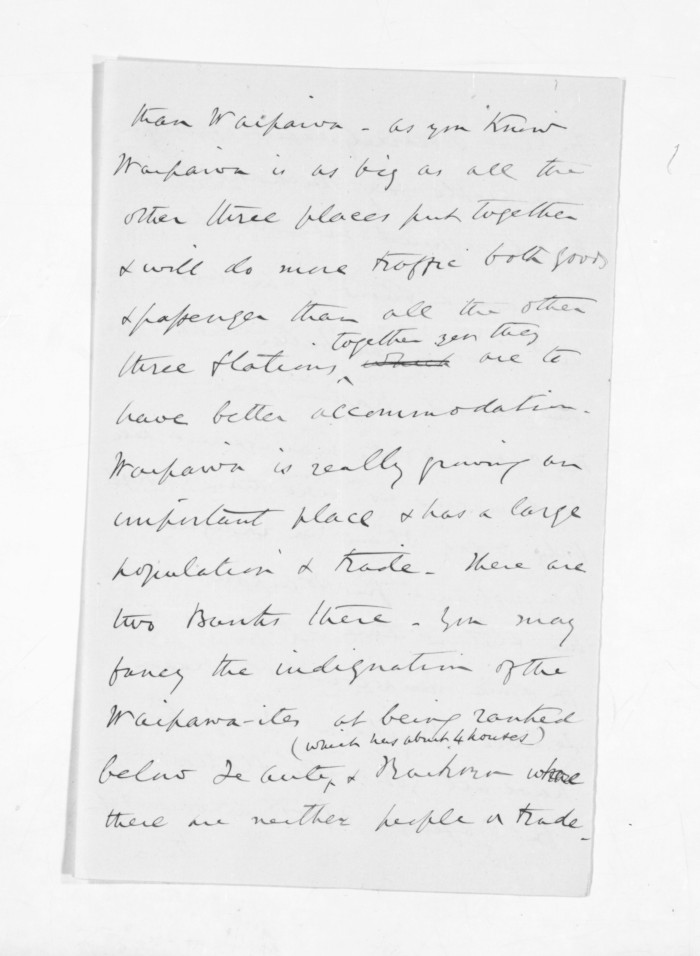 than Waipawa - as you know
Waipawa is as big as all the
other three places put together
& will do more traffic both goods
& passenger than all the other
together yet they
three stations which are to
have better accommodation -
Waipawa is really growing an
important place & has a large
population & trade - There are
two Banks there - You may
fancy the indignation of the
Waipawa-ites at being ranked
(which has about 4 houses)
below Te Aute, & where
there are neither people or trade -